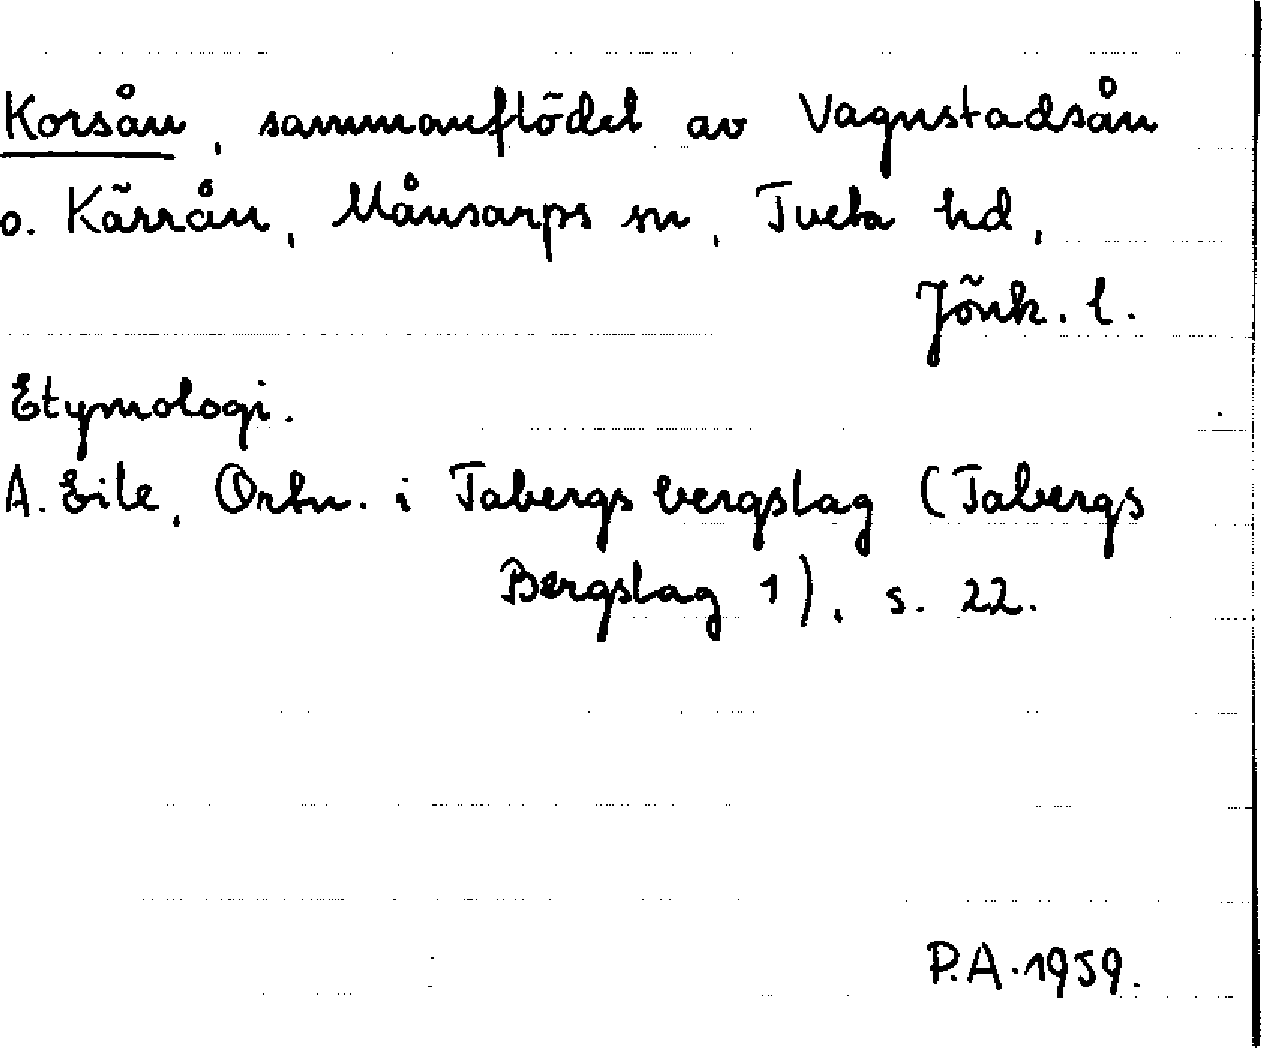 Korsån, sammanflödet av Vagnstadsån
o. Kärrån, Månsarps sn, Tveta hd,
Jönk. l.
Etymologi.
A. Eile, Ortn. i Tabergs bergslag (Tabergs
Bergslag 1), s. 22.
P.A. 1959.